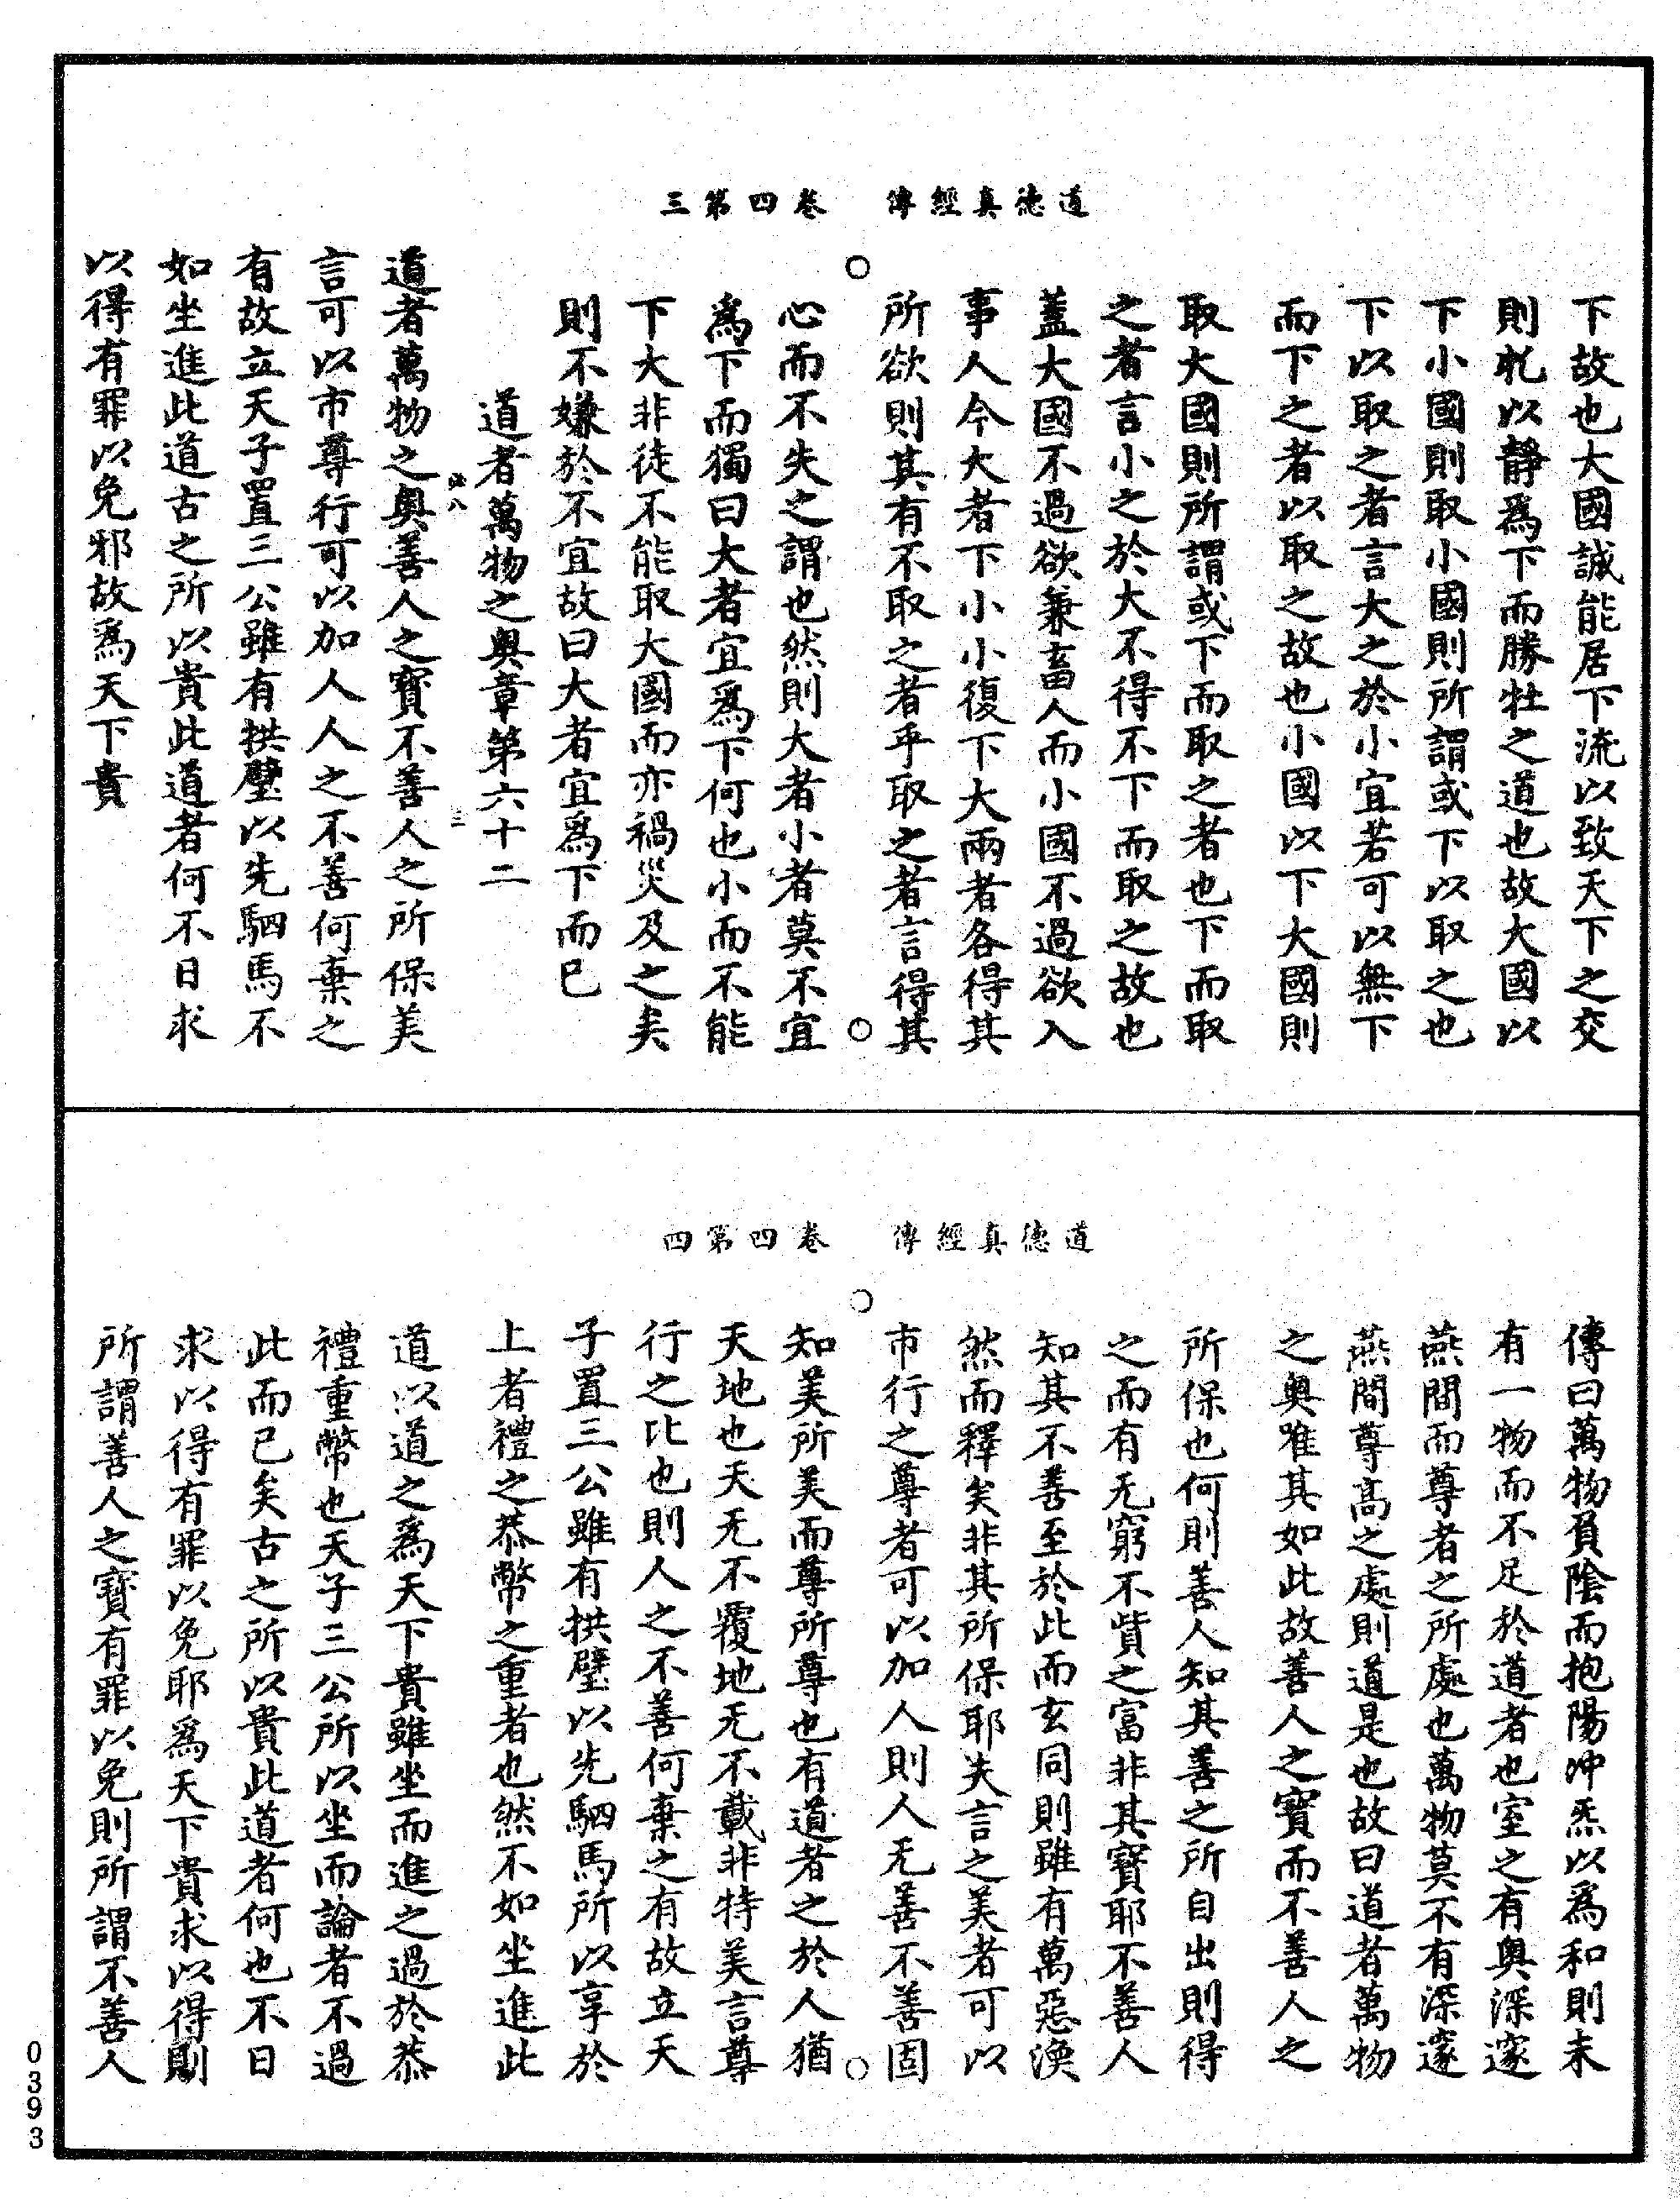 道德真經傳　卷四第三
下故也大國誠能居下流以致天下之交
則牝以靜爲下而勝牡之道也故大國以
下小國則取小國則所謂或下以取之也
下以取之者言大之於小宜若可以無下
而下之者以取之故也小國以下大國則
取大國則所謂或下而取之者也下而取
之者言小之於大不得不下而取之故也
蓋大國不過欲兼畜人而小國不過欲入
事人今大者下小小復下大兩者各得其
所欲則其有不取之者乎取之者言得其
心而不失之謂也然則大者小者莫不宜
爲下而獨曰大者宜爲下何也小而不能
下大非徒不能取大國而亦禍災及之矣
則不嫌於不宜故曰大者宜爲下而已
道者萬物之奥章第六十二
道者萬物之奥善人之寳不善人之所保美
言可以市尊行可以加人人之不善何棄之
有故立天子置三公雖有拱璧以先駟馬不
如坐進此道古之所以貴此道者何不日求
以得有罪以免邪故爲天下貴
道德真經傳　卷四第四
傳曰萬物負陰而抱陽冲炁以爲和則未
有一物而不足於道者也室之有奥深邃
燕間而尊者之所處也萬物莫不有深邃
燕間尊高之處則道是也故曰道者萬物
之奥唯其如此故善人之寳而不善人之
所保也何則善人知其善之所自出則得
之而有无窮不貲之富非其寳耶不善人
知其不善至於此而玄同則雖有萬惡渙
然而釋矣非其所保耶夫言之美者可以
市行之尊者可以加人則人无善不善固
知美所美而尊所尊也有道者之於人猶
天地也天无不覆地无不載非特美言尊
行之比也則人之不善何棄之有故立天
子置三公雖有拱璧以先駟馬所以享於
上者禮之恭幣之重者也然不如坐進此
道以道之爲天下貴雖坐而進之過於恭
禮重幣也天子三公所以坐而論者不過
此而已矣古之所以貴此道者何也不日
求以得有罪以免耶爲天下貴求以得則
所謂善人之寳有罪以免則所謂不善人
0393